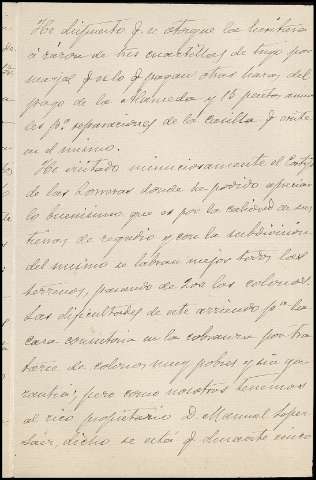 He dispuesto q. se otorgue la
á razon de tres cuartillas de trigo por
q. se lo q. pagan otras hazas del
pago de la Alameda y 15 pesetas anua
les pª. reparaciones de la casilla q. existe
en el mismo.
He visitado minuciosamente el Cortijo
de las Lomeras donde he podido apreciar
lo buenisimo que es por la calidad de sus
tierras de regadio y con la subdivision
del mismo se labran mejor todos los
terrenos, pasando de 200 los colonos.
Las dificultades de este arriendo pª. la
casa consistiria en la cobranza por tra
tarse de colonos muy pobres y sin ga
rantia; pero como nosotros tenemos
al rico propietario D. Manuel Lopez
Saez, dicho se está q. durante cinco